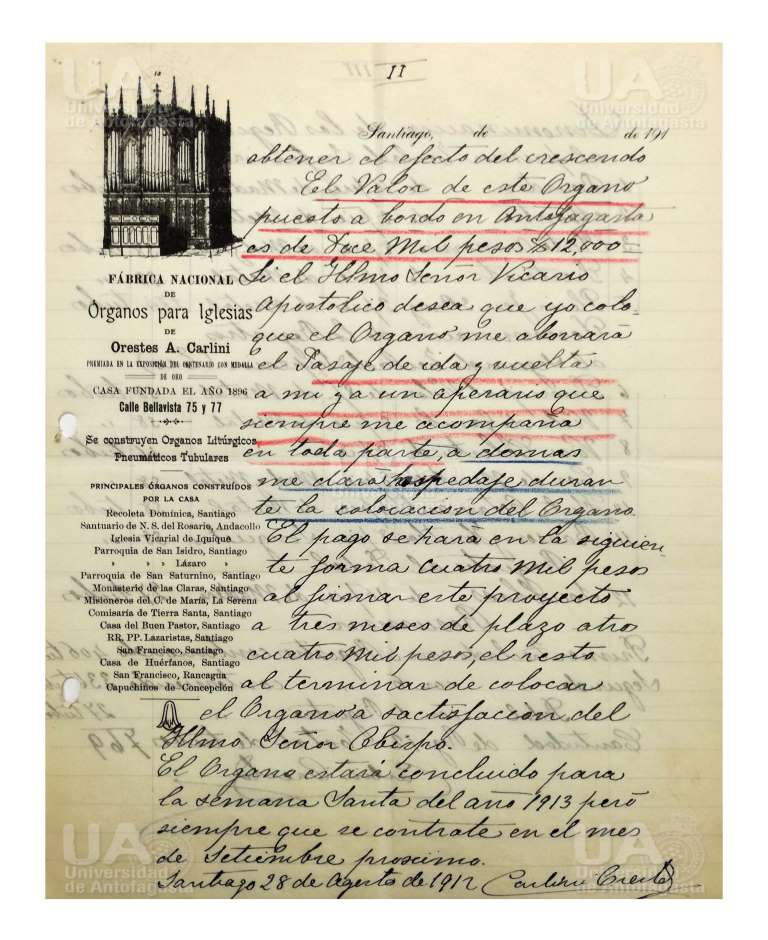 II
Santiago, de de 191
obtener el efecto del crescendo
El Valor de este Organo
puesto a bordo en Antofagasta
es de Doce Mil pesos $ 12,000
Si el Illmo Señor Vicario
Apostolico desea que yo colo-
que el Organo me abonará
el Pasaje de ida y vuelta
a mi y a un operario que
siempre me acompaña
en toda parte, a demas
me dará hospedaje duran
te la colocacion del Organo.
El pago se hará en la siguien-
te forma Cuatro Mil pesos
al firmar este proyecto
a tres meses de plazo otros
cuatro Mil pesos, el resto
al terminar de colocar
el Organo a sactisfacion del
Illmo Señor Obispo.
El Organo estará concluido para
la semana Santa del año 1913 peró
siempre que se contrate en el mes
de Setiembre proscimo.
Santiago 28 de Agosto de 1912
FÁBRICA NACIONAL
DE
Órganos para Iglesias
DE
Orestes A. Carlini
PREMIADA EN LA EXPOSICIÓN DEL CENTENARIO CON MEDALLA
DE ORO
CASA FUNDADA EL AÑO 1896
Calle Bellavista 75 y 77
Se construyen Organos Litúrgicos
Pneumáticos Tubulares
PRINCIPALES ÓRGANOS CONSTRUÍDOS
POR LA CASA
Recoleta Domínica, Santiago
Santuario de N. S. del Rosario, Andacollo
Iglesia Vicarial de Iquique
Parroquia de San Isidro, Santiago
» » Lázaro »
Parroquia de San Saturnino, Santiago
Monasterio de las Claras, Santiago
Misioneros del C. de María, La Serena
Comisaría de Tierra Santa, Santiago
Casa del Buen Pastor, Santiago
RR. PP. Lazaristas, Santiago
San Francisco, Santiago
Casa de Huérfanos, Santiago
San Francisco, Rancagua
Capuchinos de Concepción
UA
Universidad
de Antofagasta
UA
Universidad
de Antofagasta
UA
Universidad
de Antofagasta
UA
Universidad
de Antofagasta